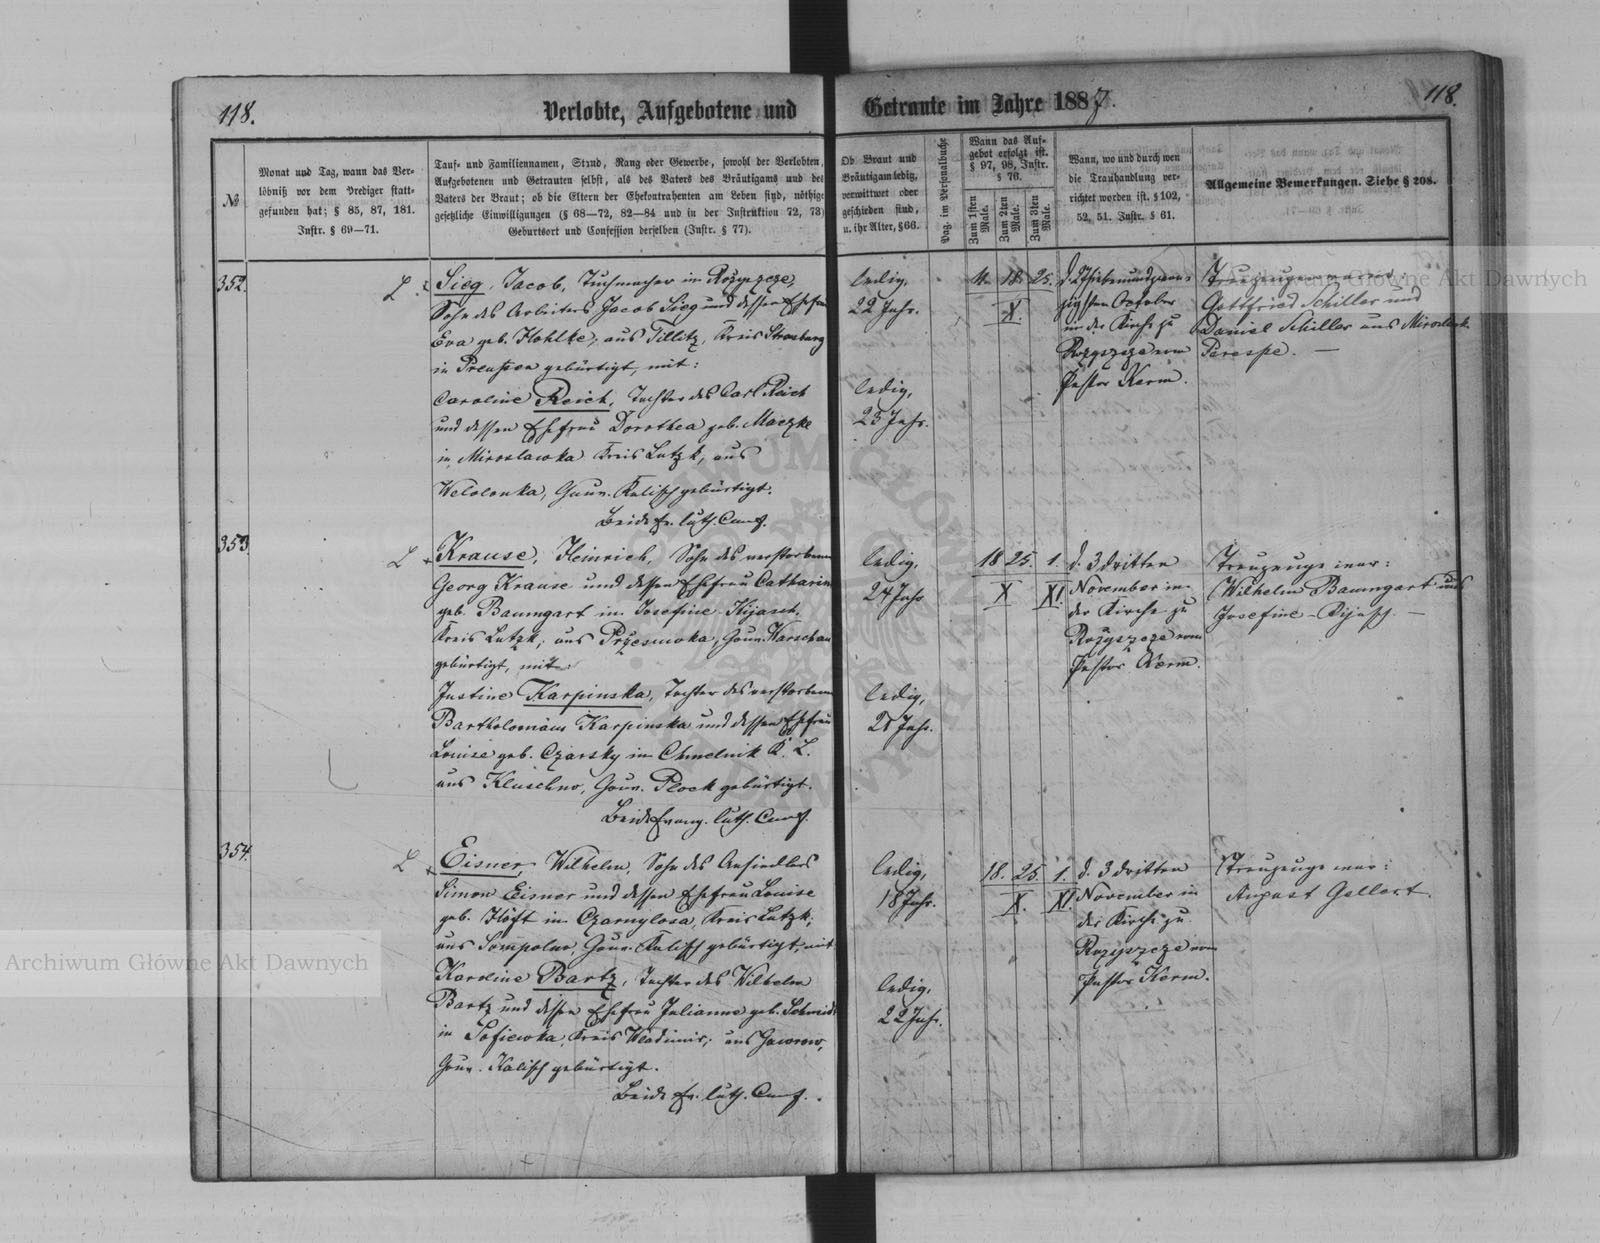 118.
Verlobte, Aufgebotene und
Getraute im Jahre 1887.
118.
№
Monat und Tag, wann das Ver-
löbniß vor dem Prediger statt-
gefunden hat; § 85, 87, 181.
Instr. § 69—71.
Tauf- und Familiennamen, Stand, Rang oder Gewerbe, sowohl der Verlobten,
Aufgebotenen und Getrauten selbst, als des Vaters des Bräutigams und des
Vaters der Braut; ob die Eltern der Ehekontrahenten am Leben sind, nöthige
gesetzliche Einwilligungen (§ 68—72, 82—84 und in der Instruktion 72, 73)
Geburtsort und Confession derselben (Instr. § 77).
Ob Braut und
Bräutigam ledig,
verwittwet oder
geschieden sind,
u. ihr Alter, § 66.
Pag. im Personalbuche
Wann das Auf-
gebot erfolgt ist.
§ 97, 98, Instr.
§ 76.
Zum 1sten Male.
Zum 2ten Male.
Zum 3ten Male.
Wann, wo und durch wen
die Trauhandlung ver-
richtet worden ist. § 102,
52, 51. Instr. § 61.
Allgemeine Bemerkungen. Siehe § 208.
352.
L.
Sieg, Jacob, Tuchmacher in Rożyszcze,
Sohn des Arbeiters Jacob Sieg und dessen Ehefrau
Eva geb. Kohlke, aus Tillitz, Kreis Strasburg
in Preußen gebürtigt, mit:
Caroline Reich, Tochter des Carl Reich
und dessen Ehefrau Dorothea geb. Maczke
in Miroslawka Kreis Lutzk, aus
Gouv. Kalisch gebürtigt.
Beide Ev. luth. Conf.
ledig,
22 Jahr.
ledig,
23 Jahr.
11. 18. 25.
X.
d. 27 siebenundzwan-
zigsten October
in der Kirche zu
Rożyszcze vom
Pastor Kerm.
Trauzeugen waren:
Gottfried Schiller und
Daniel Schiller aus
Perespe. —
353
L
Krause, Heinrich, Sohn des verstorbenen
Georg Krause und dessen Ehefrau Catharine
geb. Baumgart in Josefine-Kijasch,
Kreis Lutzk, aus Gouv. Warschau
gebürtigt, mit:
Justine Karpinska, Tochter des verstorbenen
Bartholomäus Karpinska und dessen Ehefrau
Louise geb. Czarsky in Chmelnik K. L.
aus Kluschno, Gouv. Plock gebürtigt.
Beide Evang. luth. Conf.
ledig,
24 Jahr
ledig,
Jahr.
18 25. 1.
X XI.
d. 3 dritten
November in
der Kirche zu
Rożyszcze vom
Pastor Kerm.
Trauzeuge war:
Wilhelm Baumgart aus
Josefine-Kijasch. —
354.
L
Eisner, Wilhelm, Sohn des Ansiedlers
Simon Eisner und dessen Ehefrau Louise
geb. Höft in Czarnylosa, Kreis Lutzk,
aus Sompolno, Gouv. Kalisch gebürtigt, mit
Karoline Bartz, Tochter des Wilhelm
Bartz und dessen Ehefrau Julianne geb. Schmidt
in Sofiewka, Kreis Wladimir, aus
Gouv. Kalisch gebürtigt.
Beide Ev. luth. Conf.
ledig,
18 Jahr.
ledig,
22 Jahr.
18. 25. 1.
X. XI.
d. 3 dritten
November in
der Kirche zu
Rożyszcze vom
Pastor Kerm.
Trauzeuge war:
August Gellert.
Archiwum Główne Akt Dawnych
Archiwum Główne Akt Dawnych